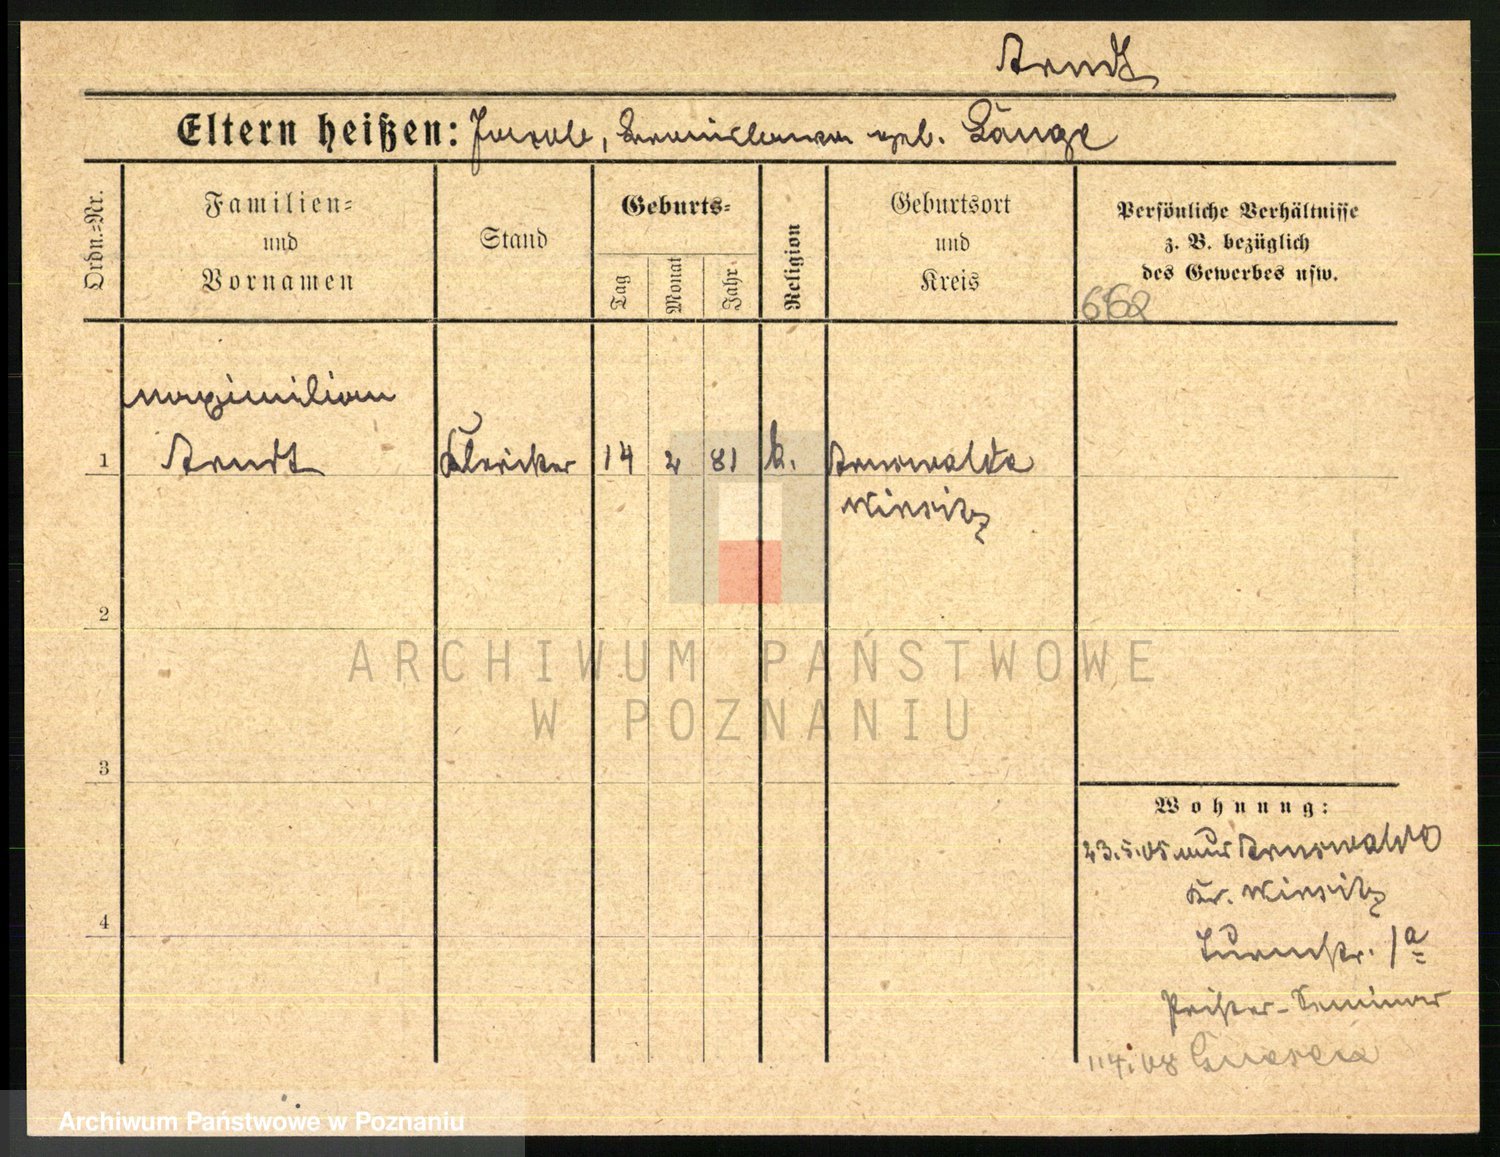 Arndt
Eltern heißen: Jacob, Bronislawa geb. Lange
Ordn.=Nr.
Familien=
und
Vornamen
Stand
Geburts=
Tag
Monat
Jahr
Religion
Geburtsort
und
Kreis
Persönliche Verhältnisse
z. B. bezüglich
des Gewerbes usw.
662
Maximilian
1 Arndt Kleriker 14 2 81 k. Arnswalde
Wirsitz
2
3
4
ARCHIWUM PAŃSTWOWE
W POZNANIU
Wohnung:
23.5.05 aus Arnswalde
Kr. Wirsitz
Turmstr. 1a
Priester-Seminar
1 4. 08 Gnesen
Archiwum Państwowe w Poznaniu